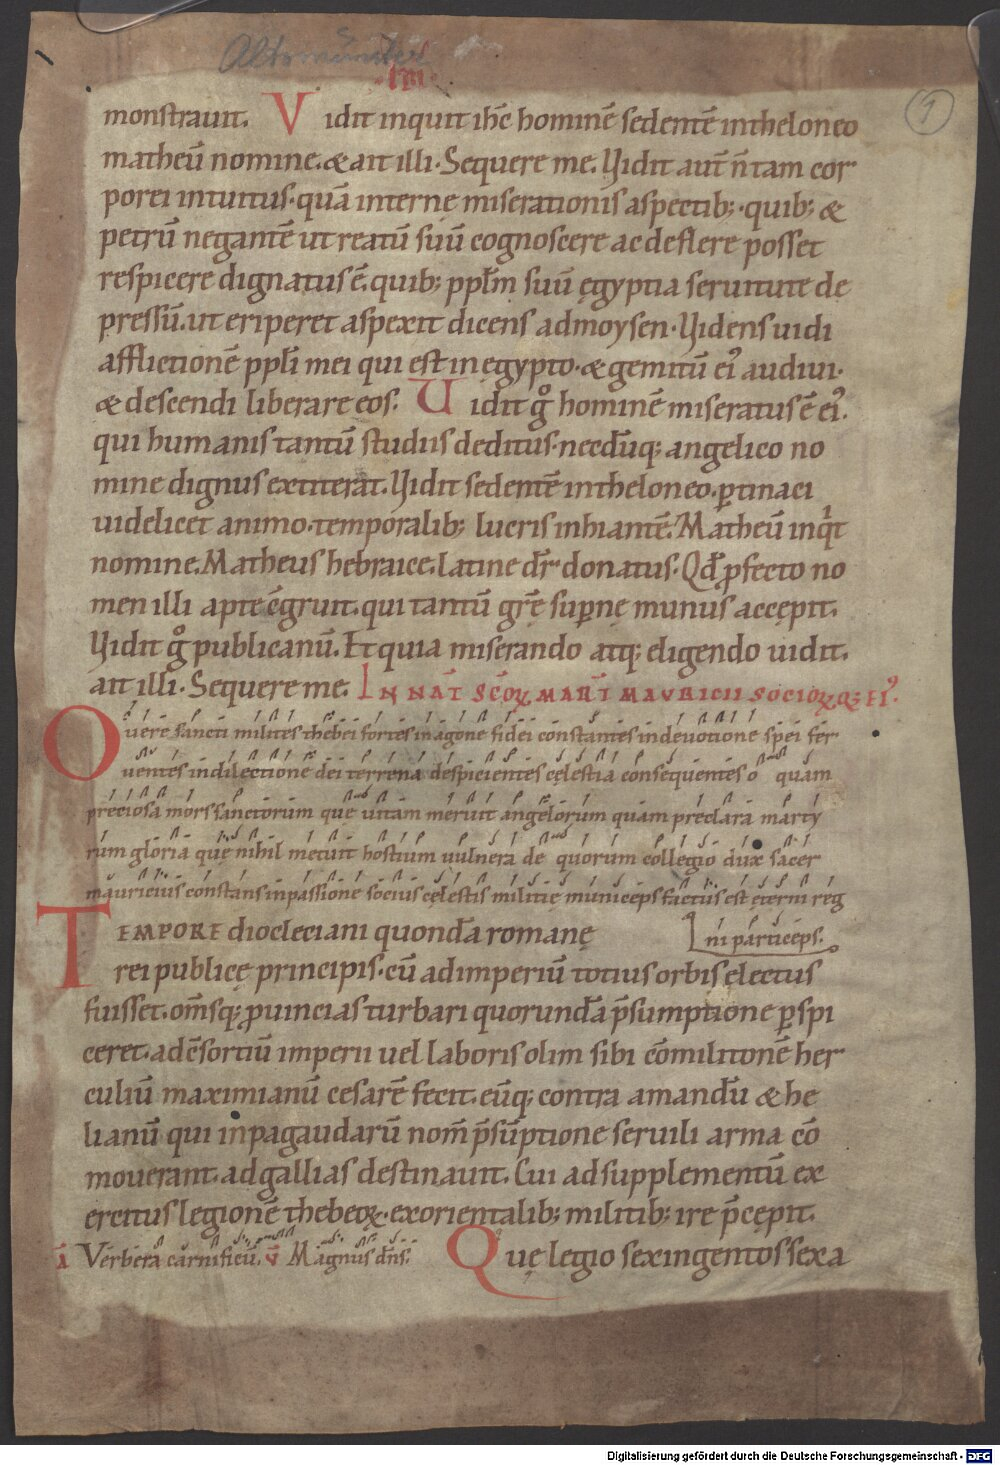 Altomünster
·IIII·
1
monstrauit. Vidit inquit ihc̄ hominē sedentē intheloneo
matheū nomine. & ait illi· Sequere me. Vidit aut̄ n̄ tam cor
porei intuitus· quā internę miserationis aspectib;· quib; &
petrū negantē ut reatū suū cognoscere ac deflere posset
respicere dignatus ē. quib; ppl̄m suū ęgyptia seruitute de
pressū. ut eriperet aspexit dicens admoysen· Videns uidi
afflictionē ppl̄i mei qui est in ęgypto· & gemitū ei᾽ audiui·
& descendi liberare eos. Uidit gͦ hominē miseratus ē ei᾽.
qui humanis tantū studiis deditus· necdūq; angelico no
mine dignus extiterat. Vidit sedentē intheloneo. ꝑtinaci
uidelicet animo· temporalib; lucris inhiantē. Matheū inqͥt
nomine. Matheus hebraice. latine dr̄ donatus· Qđ ꝓfecto no
men illi apte ɔ̄gruit. qui tantū gr̄ę suꝑnę munus accępit.
Vidit gͦ publicanū. Et quia miserando atq; eligendo uidit.
ait illi· Sequere me. IN NAT̄ SC̄OꝜ MART̄ MAVRICII SOCIOꝜQ; EI᾽.
O uere sancti milites thebei fortes in agone fidei constantes in deuotione spei fer
uentes in dilectione dei terrena despicientes cęlestia consequentes o quam
preciosa mors sanctorum que uitam meruit angelorum quam preclara marty
rum gloria quę nihil metuit hostium uulnera de quorum collegio dux sacer
mauricius constans in passione socius cęlestis militię municeps factus est ęterni reg
ni particeps.
TEMPORE diocleciani quondā romanę
rei publicę principis· cū adimperiū totius orbis ęlectus
fuisset. om̄sq; ꝓuincias turbari quorundā p̄sumptione ꝑspi
ceret. ad ɔ̄sortiū imperii uel laboris olim sibi cōmilitonē her
culiū maximianū cesarē fecit. eūq; contra amandū & he
lianū qui inpagaudarū nom̄ p̄sūptione seruili arma cō
mouerant. adgallias destinauit. Cui adsupplementū ex
ercitus legionē thebeoꝝ· exorientalib; militib; ire p̄cępit.
R̄ Verbera carnificū. V̄ Magnus dn̄s. Quę legio sexingentos sexa
Digitalisierung gefördert durch die Deutsche Forschungsgemeinschaft - DFG